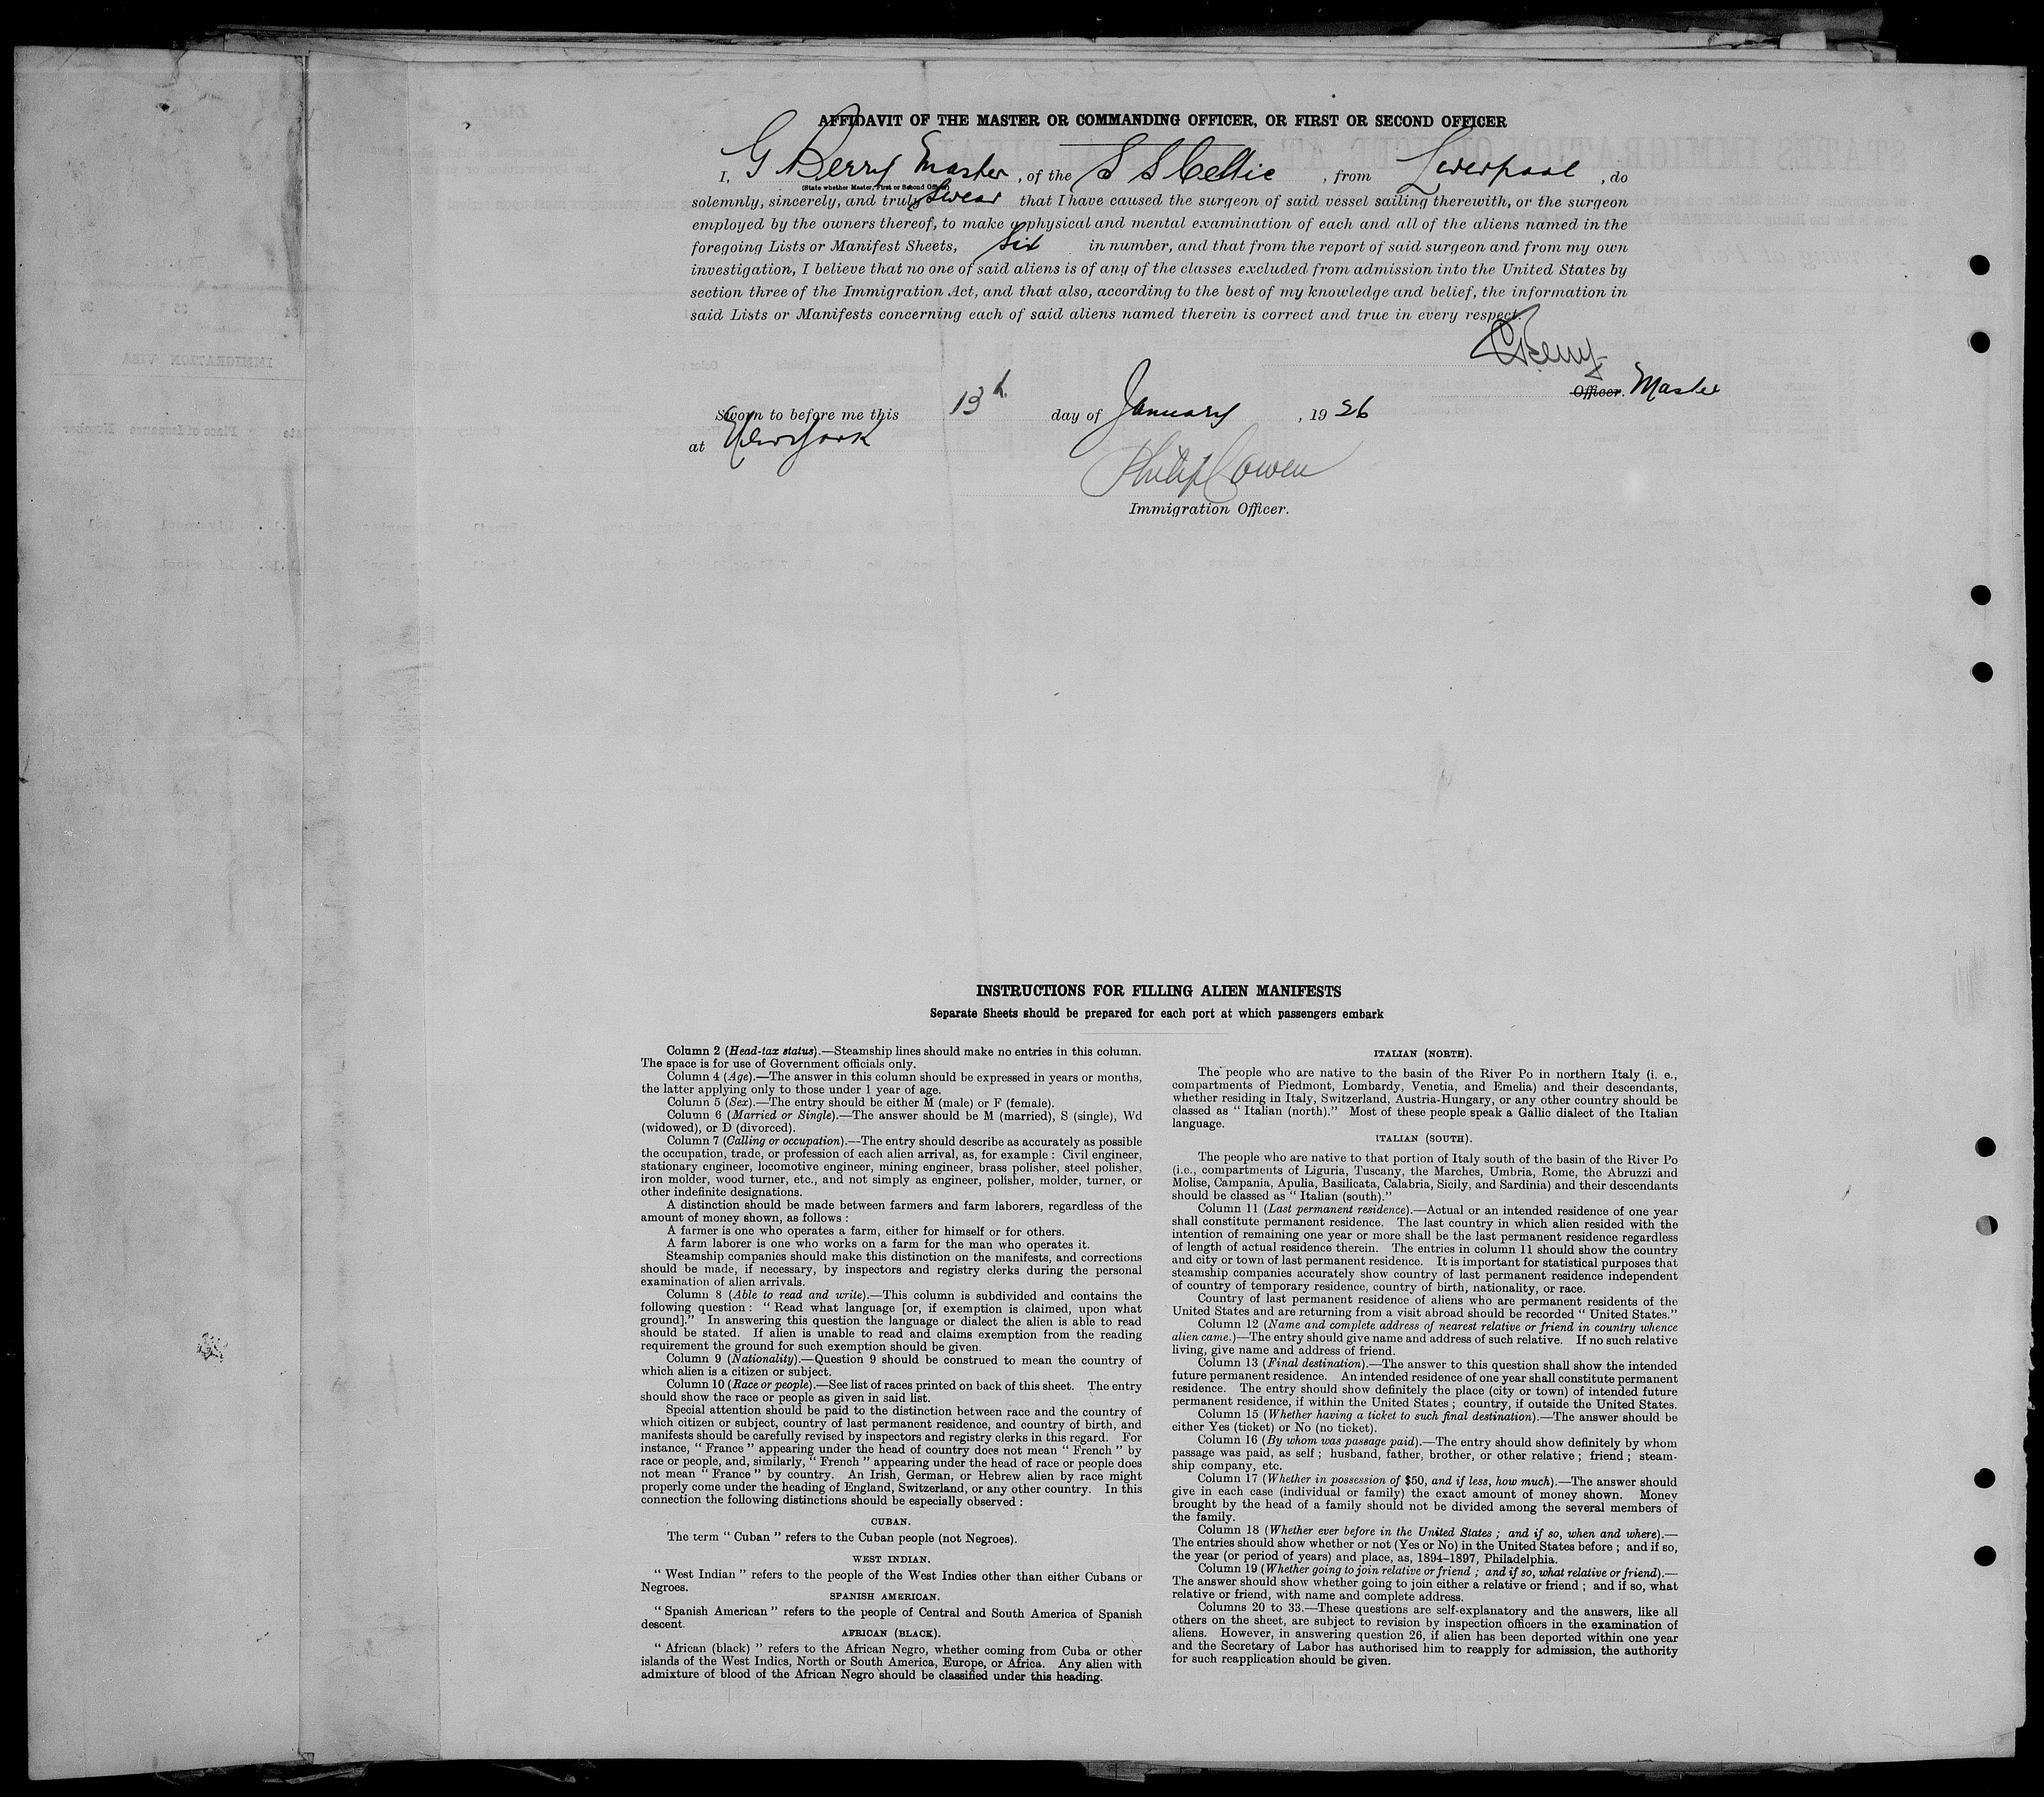 AFFIDAVIT OF THE MASTER OR COMMANDING OFFICER, OR FIRST OR SECOND OFFICER
I, G Berry Master, of the S S Celtic, from Liverpool, do
(State whether Master, First or Second Officer)
solemnly, sincerely, and truly Swear that I have caused the surgeon of said vessel sailing therewith, or the surgeon
employed by the owners thereof, to make a physical and mental examination of each and all of the aliens named in the
foregoing Lists or Manifest Sheets, Six in number, and that from the report of said surgeon and from my own
investigation, I believe that no one of said aliens is of any of the classes excluded from admission into the United States by
section three of the Immigration Act, and that also, according to the best of my knowledge and belief, the information in
said Lists or Manifests concerning each of said aliens named therein is correct and true in every respect.
G Berry
Officer. Master
Sworn to before me this 13th day of January, 1926
at New York
Philip Cowen
Immigration Officer.
INSTRUCTIONS FOR FILLING ALIEN MANIFESTS
Separate Sheets should be prepared for each port at which passengers embark
Column 2 (Head-tax status).—Steamship lines should make no entries in this column.
The space is for use of Government officials only.
Column 4 (Age).—The answer in this column should be expressed in years or months,
the latter applying only to those under 1 year of age.
Column 5 (Sex).—The entry should be either M (male) or F (female).
Column 6 (Married or Single).—The answer should be M (married), S (single), Wd
(widowed), or D (divorced).
Column 7 (Calling or occupation).—The entry should describe as accurately as possible
the occupation, trade, or profession of each alien arrival, as, for example : Civil engineer,
stationary engineer, locomotive engineer, mining engineer, brass polisher, steel polisher,
iron molder, wood turner, etc., and not simply as engineer, polisher, molder, turner, or
other indefinite designations.
A distinction should be made between farmers and farm laborers, regardless of the
amount of money shown, as follows :
A farmer is one who operates a farm, either for himself or for others.
A farm laborer is one who works on a farm for the man who operates it.
Steamship companies should make this distinction on the manifests, and corrections
should be made, if necessary, by inspectors and registry clerks during the personal
examination of alien arrivals.
Column 8 (Able to read and write).—This column is subdivided and contains the
following question : “ Read what language [or, if exemption is claimed, upon what
ground].” In answering this question the language or dialect the alien is able to read
should be stated. If alien is unable to read and claims exemption from the reading
requirement the ground for such exemption should be given.
Column 9 (Nationality).—Question 9 should be construed to mean the country of
which alien is a citizen or subject.
Column 10 (Race or people).—See list of races printed on back of this sheet. The entry
should show the race or people as given in said list.
Special attention should be paid to the distinction between race and the country of
which citizen or subject, country of last permanent residence, and country of birth, and
manifests should be carefully revised by inspectors and registry clerks in this regard. For
instance, “ France ” appearing under the head of country does not mean “ French ” by
race or people, and, similarly, “ French ” appearing under the head of race or people does
not mean “ France ” by country. An Irish, German, or Hebrew alien by race might
properly come under the heading of England, Switzerland, or any other country. In this
connection the following distinctions should be especially observed :
CUBAN.
The term “ Cuban ” refers to the Cuban people (not Negroes).
WEST INDIAN.
“ West Indian ” refers to the people of the West Indies other than either Cubans or
Negroes.
SPANISH AMERICAN.
“ Spanish American ” refers to the people of Central and South America of Spanish
descent.
AFRICAN (BLACK).
“ African (black) ” refers to the African Negro, whether coming from Cuba or other
islands of the West Indies, North or South America, Europe, or Africa. Any alien with
admixture of blood of the African Negro should be classified under this heading.
ITALIAN (NORTH).
The people who are native to the basin of the River Po in northern Italy (i. e.,
compartments of Piedmont, Lombardy, Venetia, and Emelia) and their descendants,
whether residing in Italy, Switzerland, Austria-Hungary, or any other country should be
classed as “ Italian (north).” Most of these people speak a Gallic dialect of the Italian
language.
ITALIAN (SOUTH).
The people who are native to that portion of Italy south of the basin of the River Po
(i.e., compartments of Liguria, Tuscany, the Marches, Umbria, Rome, the Abruzzi and
Molise, Campania, Apulia, Basilicata, Calabria, Sicily, and Sardinia) and their descendants
should be classed as “ Italian (south).”
Column 11 (Last permanent residence).—Actual or an intended residence of one year
shall constitute permanent residence. The last country in which alien resided with the
intention of remaining one year or more shall be the last permanent residence regardless
of length of actual residence therein. The entries in column 11 should show the country
and city or town of last permanent residence. It is important for statistical purposes that
steamship companies accurately show country of last permanent residence independent
of country of temporary residence, country of birth, nationality, or race.
Country of last permanent residence of aliens who are permanent residents of the
United States and are returning from a visit abroad should be recorded “ United States.”
Column 12 (Name and complete address of nearest relative or friend in country whence
alien came.)—The entry should give name and address of such relative. If no such relative
living, give name and address of friend.
Column 13 (Final destination).—The answer to this question shall show the intended
future permanent residence. An intended residence of one year shall constitute permanent
residence. The entry should show definitely the place (city or town) of intended future
permanent residence, if within the United States ; country, if outside the United States.
Column 15 (Whether having a ticket to such final destination).—The answer should be
either Yes (ticket) or No (no ticket).
Column 16 (By whom was passage paid).—The entry should show definitely by whom
passage was paid, as self ; husband, father, brother, or other relative ; friend ; steam-
ship company, etc.
Column 17 (Whether in possession of $50, and if less, how much).—The answer should
give in each case (individual or family) the exact amount of money shown. Money
brought by the head of a family should not be divided among the several members of
the family.
Column 18 (Whether ever before in the United States ; and if so, when and where).—
The entries should show whether or not (Yes or No) in the United States before ; and if so,
the year (or period of years) and place, as, 1894–1897, Philadelphia.
Column 19 (Whether going to join relative or friend ; and if so, what relative or friend).—
The answer should show whether going to join either a relative or friend ; and if so, what
relative or friend, with name and complete address.
Columns 20 to 33.—These questions are self-explanatory and the answers, like all
others on the sheet, are subject to revision by inspection officers in the examination of
aliens. However, in answering question 26, if alien has been deported within one year
and the Secretary of Labor has authorised him to reapply for admission, the authority
for such reapplication should be given.